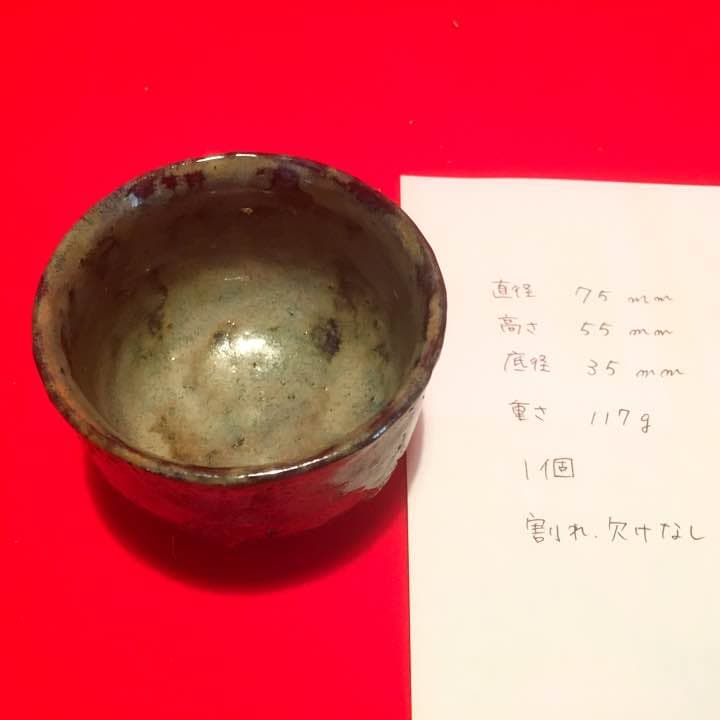 直径 75mm
高さ 55mm
底径 35mm
重さ 117g
1個
割れ.欠けなし